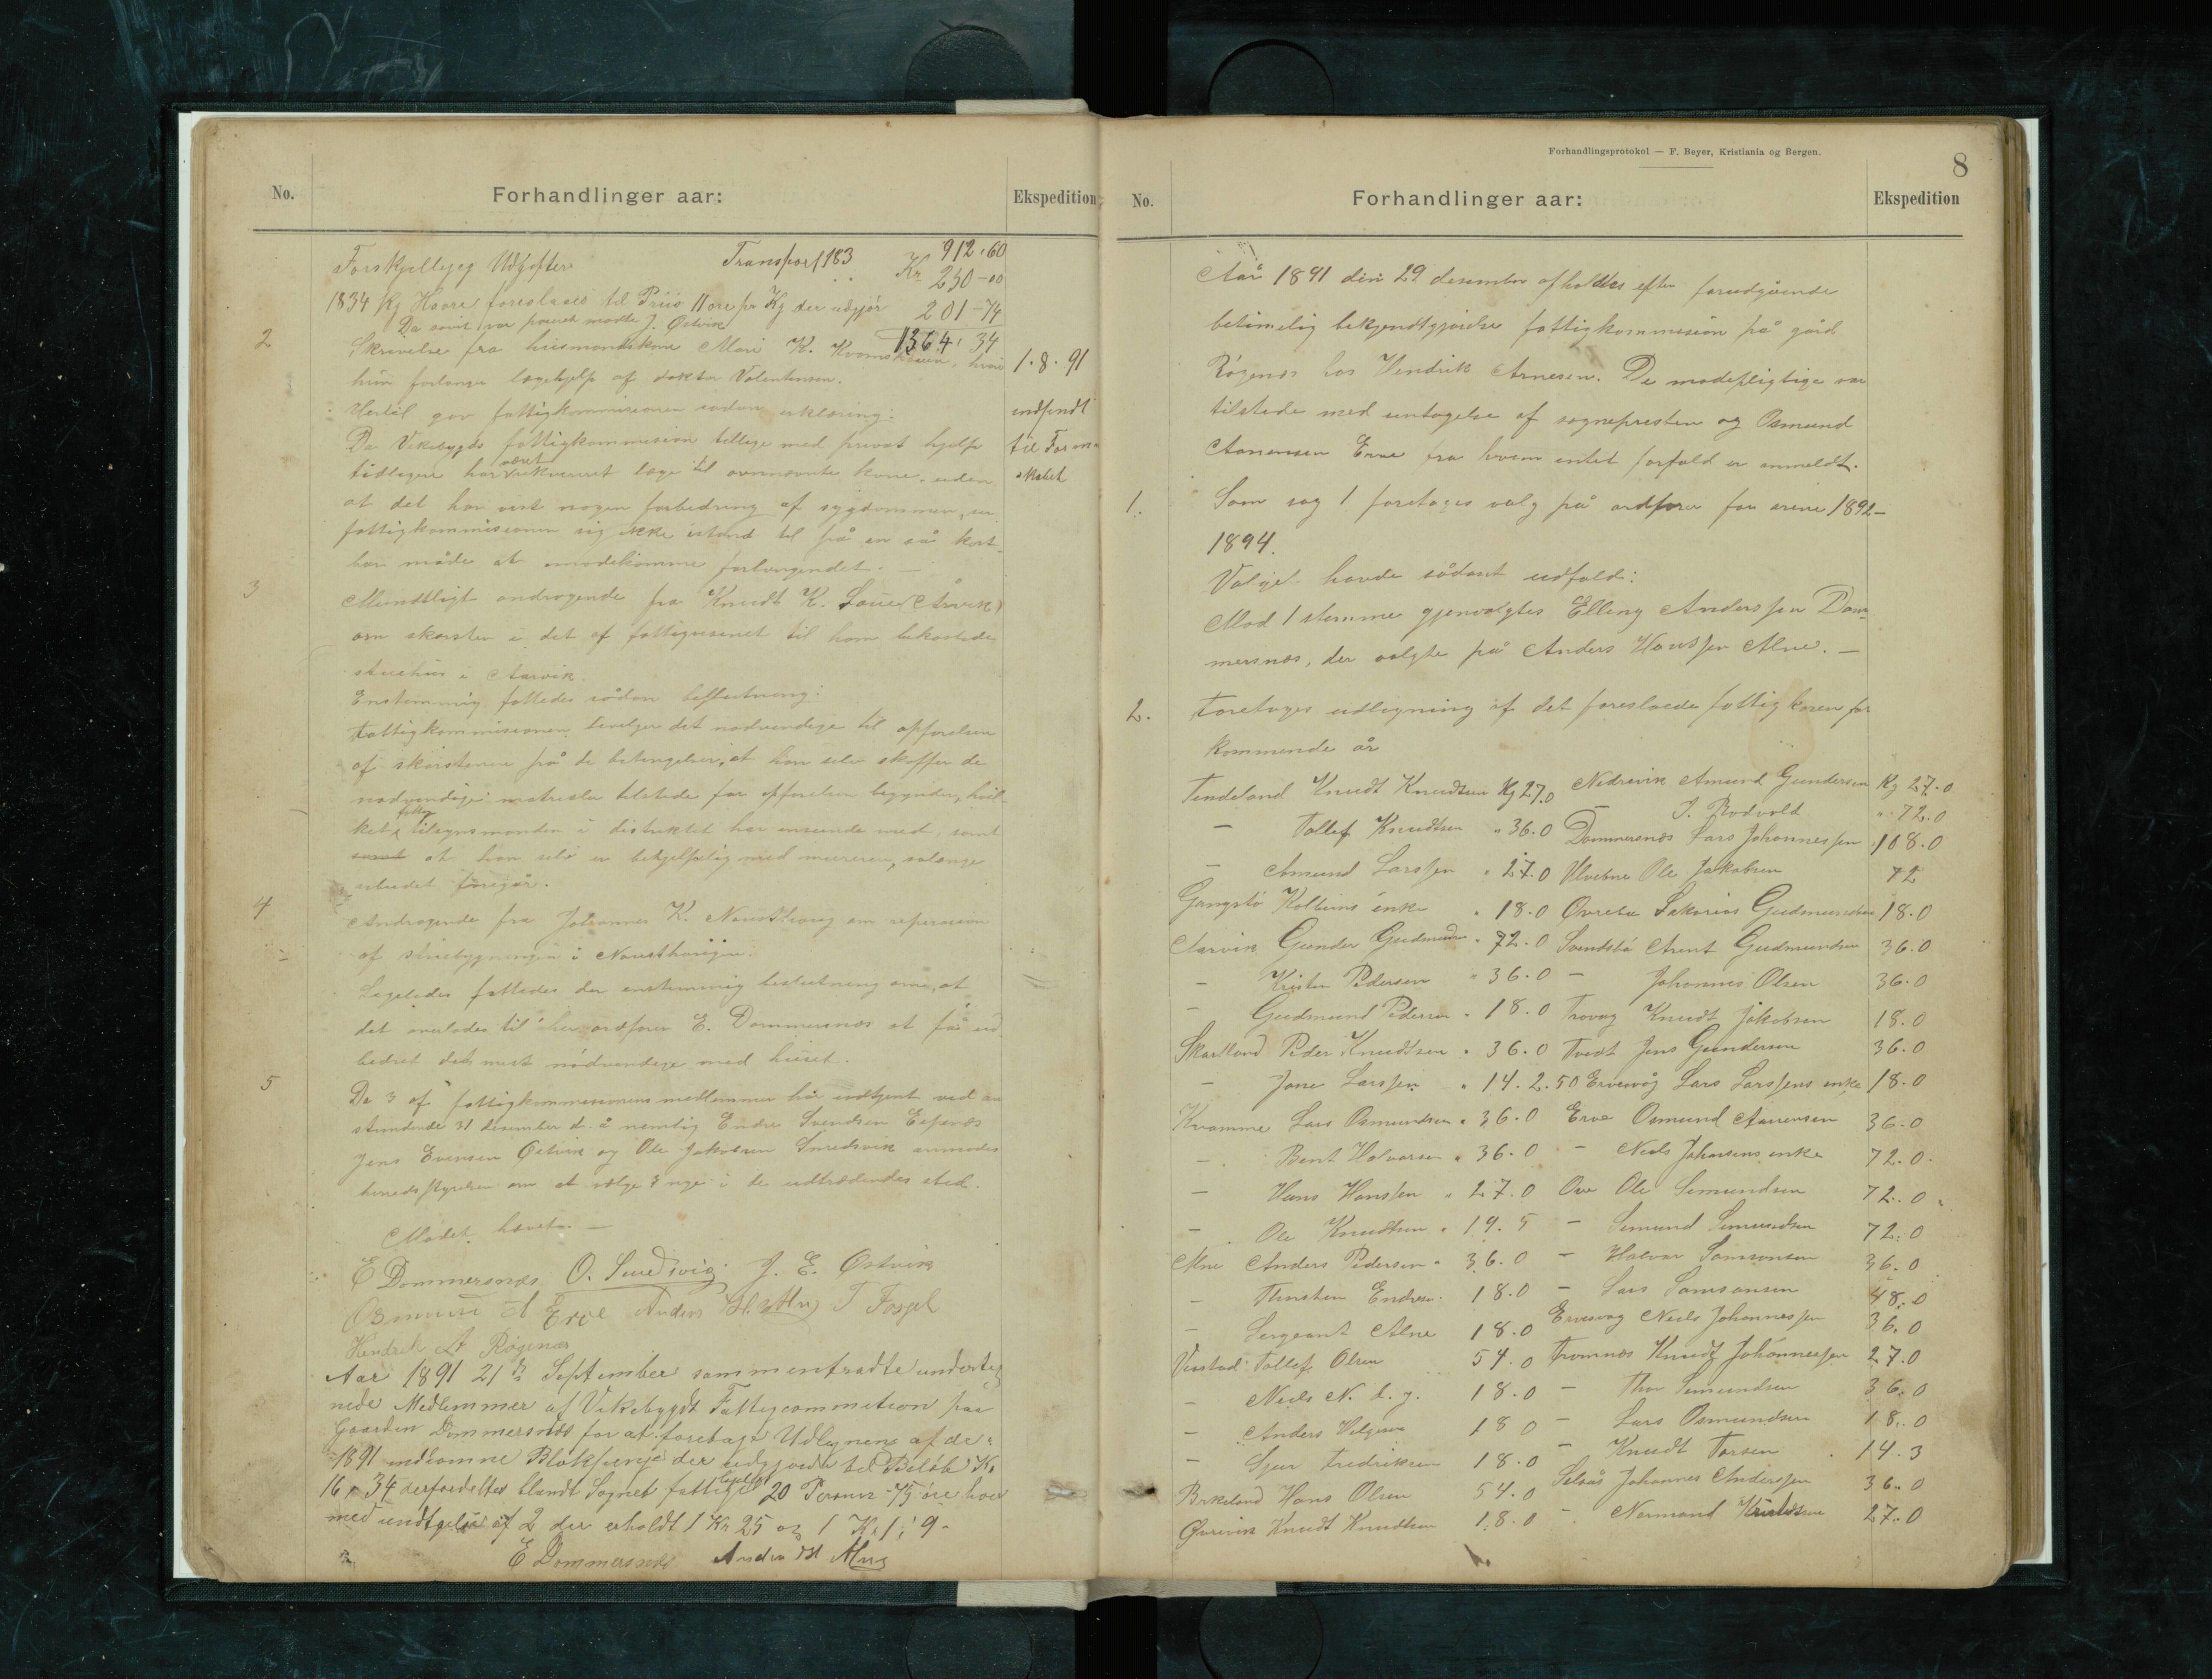 No. Forhandlinger aar: Ekspedition
Forskjelleg Udgifter Transport 183 912,60
Kr 250-00
1834 Kg Havre foreslaaes til Priis 11 øre pr Kg der udgjør 201-74
Da savit var præsent mødte J. Østvik 1364,34
2 Skrivelse fra husmandskone Mari K. hvori 1.8.91
hun forlanger lægehjelp af doktor Valentinsen.
Hertil gav fattigkommisionen sådan erklæring: indsendt
Da Vikebygds fattigkommision tillige med privat hjelp til Formandskabet
tidligere har været rekvireret læge til ovennævnte kone, uden
at det har vist nogen forbedring af sygdommen, ser
fattigkommisionen sig ikke istand til på en så kost-
bar måde at imødekomme forlangendet. —
3 Mundtligt andragende fra Knudt K. (Årvik)
om skorsten i det af fattigvæsenet til ham bekostede
stuehus i Aarvik.
Enstemmig fattedes sådan beslutning:
Fattigkommisionen bevilger det nødvendige til opførelsen
af skorstenen på de betingelser, at han selv skaffer de
nødvendige matrialer tilstede før opførelsen begynder, hvil-
ket fattigtilsynsmanden i distriktet har inseende med, samt
samt at han selv er behjelpelig med mureren, sålænge
arbeidet foregår.
4 Andragende fra Johannes K. Nausthaug om reperasion
af stuebygningen i Nausthaugen.
Ligeledes fattedes der enstemmig beslutning om, at
det overlades til her ordfører E. Dommersnæs at få ud-
bedret det mest nødvendige med huset.
5 De 3 af fattigkommisionens medlemmer har udtjent ved an-
stundende 31 desember d. å nemlig Endre Svendsen Espenæs
Jens Evensen Østvik og Ole Jakobsen Smedsvik anmodes
heredsstyrelsen om at vælge 3 nye i de udtrædendes sted.
Mødet hævet. —
E Dommersnæs O. Smedsvig. J. E. Østvik
Osmund A Erve Anders H. Alne T Fosse
Hendrik A Røgenæs
Aar 1891 21de September sammentraadte underteg
nede Medlemmer af Vikebygdt Fattigcommition paa
Gaarden Dommersnæs for at foretage Udlignene af de i
1891 indkomne Blokpenge der udgjorde bel Beløb Kr
16,34 der fordeltes blandt Sognet fattige hjelp 20 Personer 75 øre hver
med undtgelse af 2 der erholdt 1 Kr 25 og 1 Kr 1,19-
E Dommersnæs Anders H Alne
Forhandlingsprotokol — F. Beyer, Kristiania og Bergen.
8
No. Forhandlinger aar: Ekspedition
Aår 1891 den 29 desember afholdtes efter forudgående
betimelig bekjendtgjørelse fattigkommision på gård
Røgenæs hos Hendrik Arnesen. De mødepligtige var
tilstede med untagelse af sognepresten og Osmund
Aanensen Erve fra hvem intet forfald er anmeldt.
1. Som sag 1 foretoges valg på ordfører for årene 1892-
1894.
Valget havde sådant udfald:
Mod 1 stemme gjenvalgtes Elling Anderssen Dom-
mersnæs, der valgte på Anders Hanssen Alne. —
2. Foretoges udligning af det foreslaaede fattigkorn for
kommende år
Tindeland Knudt Knudtsen Kg 27.0 Nedrevik Amund Gundersen Kg 27.0
— Tollef Knudtsen " 36.0 — J. Rodvold " 72.0
— Amund Larssen " 27.0 Dommersnæs Lars Johannessen 108.0
Gangstø Kolbeins enke " 18.0 Ulvebne Ole Jakobsen 72
Aarvik Gunder Gudmundsen " 72.0 Øvrebø Sakarias Gudmundsen 18.0
— Kristen Pedersen " 36.0 Svendsbø Arent Gudmundsen 36.0
— Gudmund Pedersen " 18.0 — Johannes Olsen 36.0
Skartland Peder Knudtsen " 36.0 Trovaag Knudt Jakobsen 18.0
— Jone Larssen " 14.2.50 Tvedt Jens Gundersen 36.0
Kvamme Lars Osmundsen " 36.0 Ervevåg Lars Larssens enke 18.0
— Bent Halvorsen " 36.0 Erve Osmund Aanensen 36.0
— Hans Hanssen " 27.0 — Niels Johansens enke 72.0
— Ole Knudtsen " 19.5 Ove Ole Simundsen 72.0
Alne Anders Pedersen " 36.0 — Simund Simundsen 72.0
— Thorsten Endresen 18.0 — Halvor Samsonsen 36.0
— Sergeant Alne 18.0 — Lars Samsonsen 48.0
Vestad Tollef Olsen 54.0 Ervevåg Niels Johannessen 36.0
— Niels N. d. y. 18.0 Tromnæs Knudt Johannessen 27.0
— Anders Helgesen 18 0 — Thor Simundsen 36.0
— Sjur Fredriksen 18.0 — Lars Osmundsen 18.0
Birkeland Hans Olsen 54.0 — Knudt Torsen 14.3
Øvrevik Knudt Knudtsen 18.0 Selsås Johannes Anderssen 36.0
— Normand Knudtsen 27.0